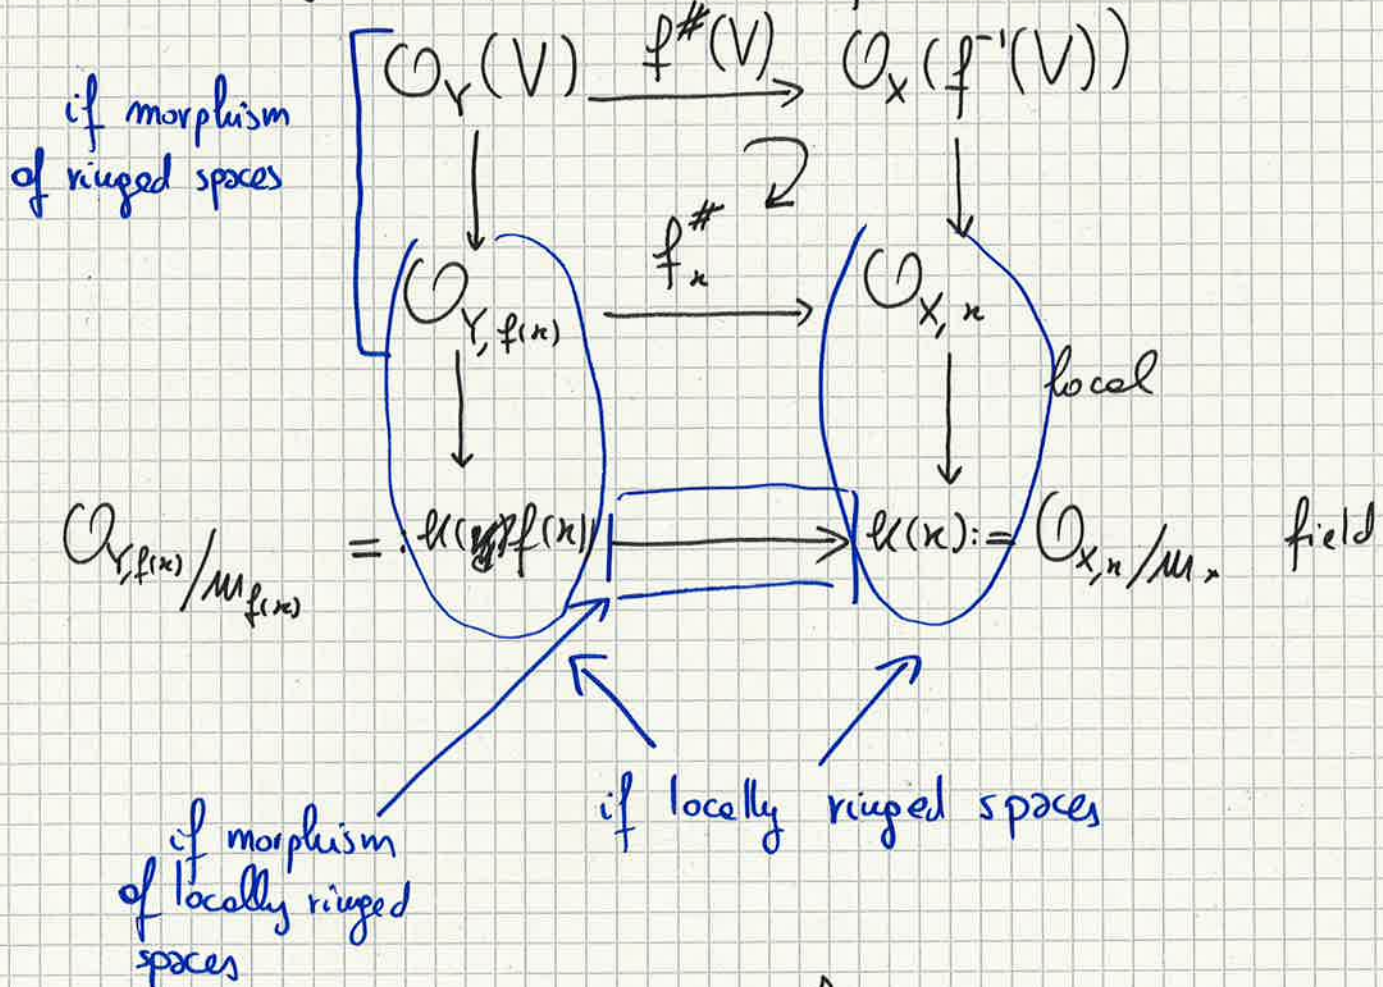 O_Y(V) f^#(V) O_X(f^{-1}(V))
if morphism
of ringed spaces
f_x^#
O_{Y, f(x)} O_{X, x}
local
O_{Y,f(x)}/m_{f(x)} =: k(f(x)) k(x) := O_{X,x}/m_x field
if locally ringed spaces
if morphism
of locally ringed
spaces